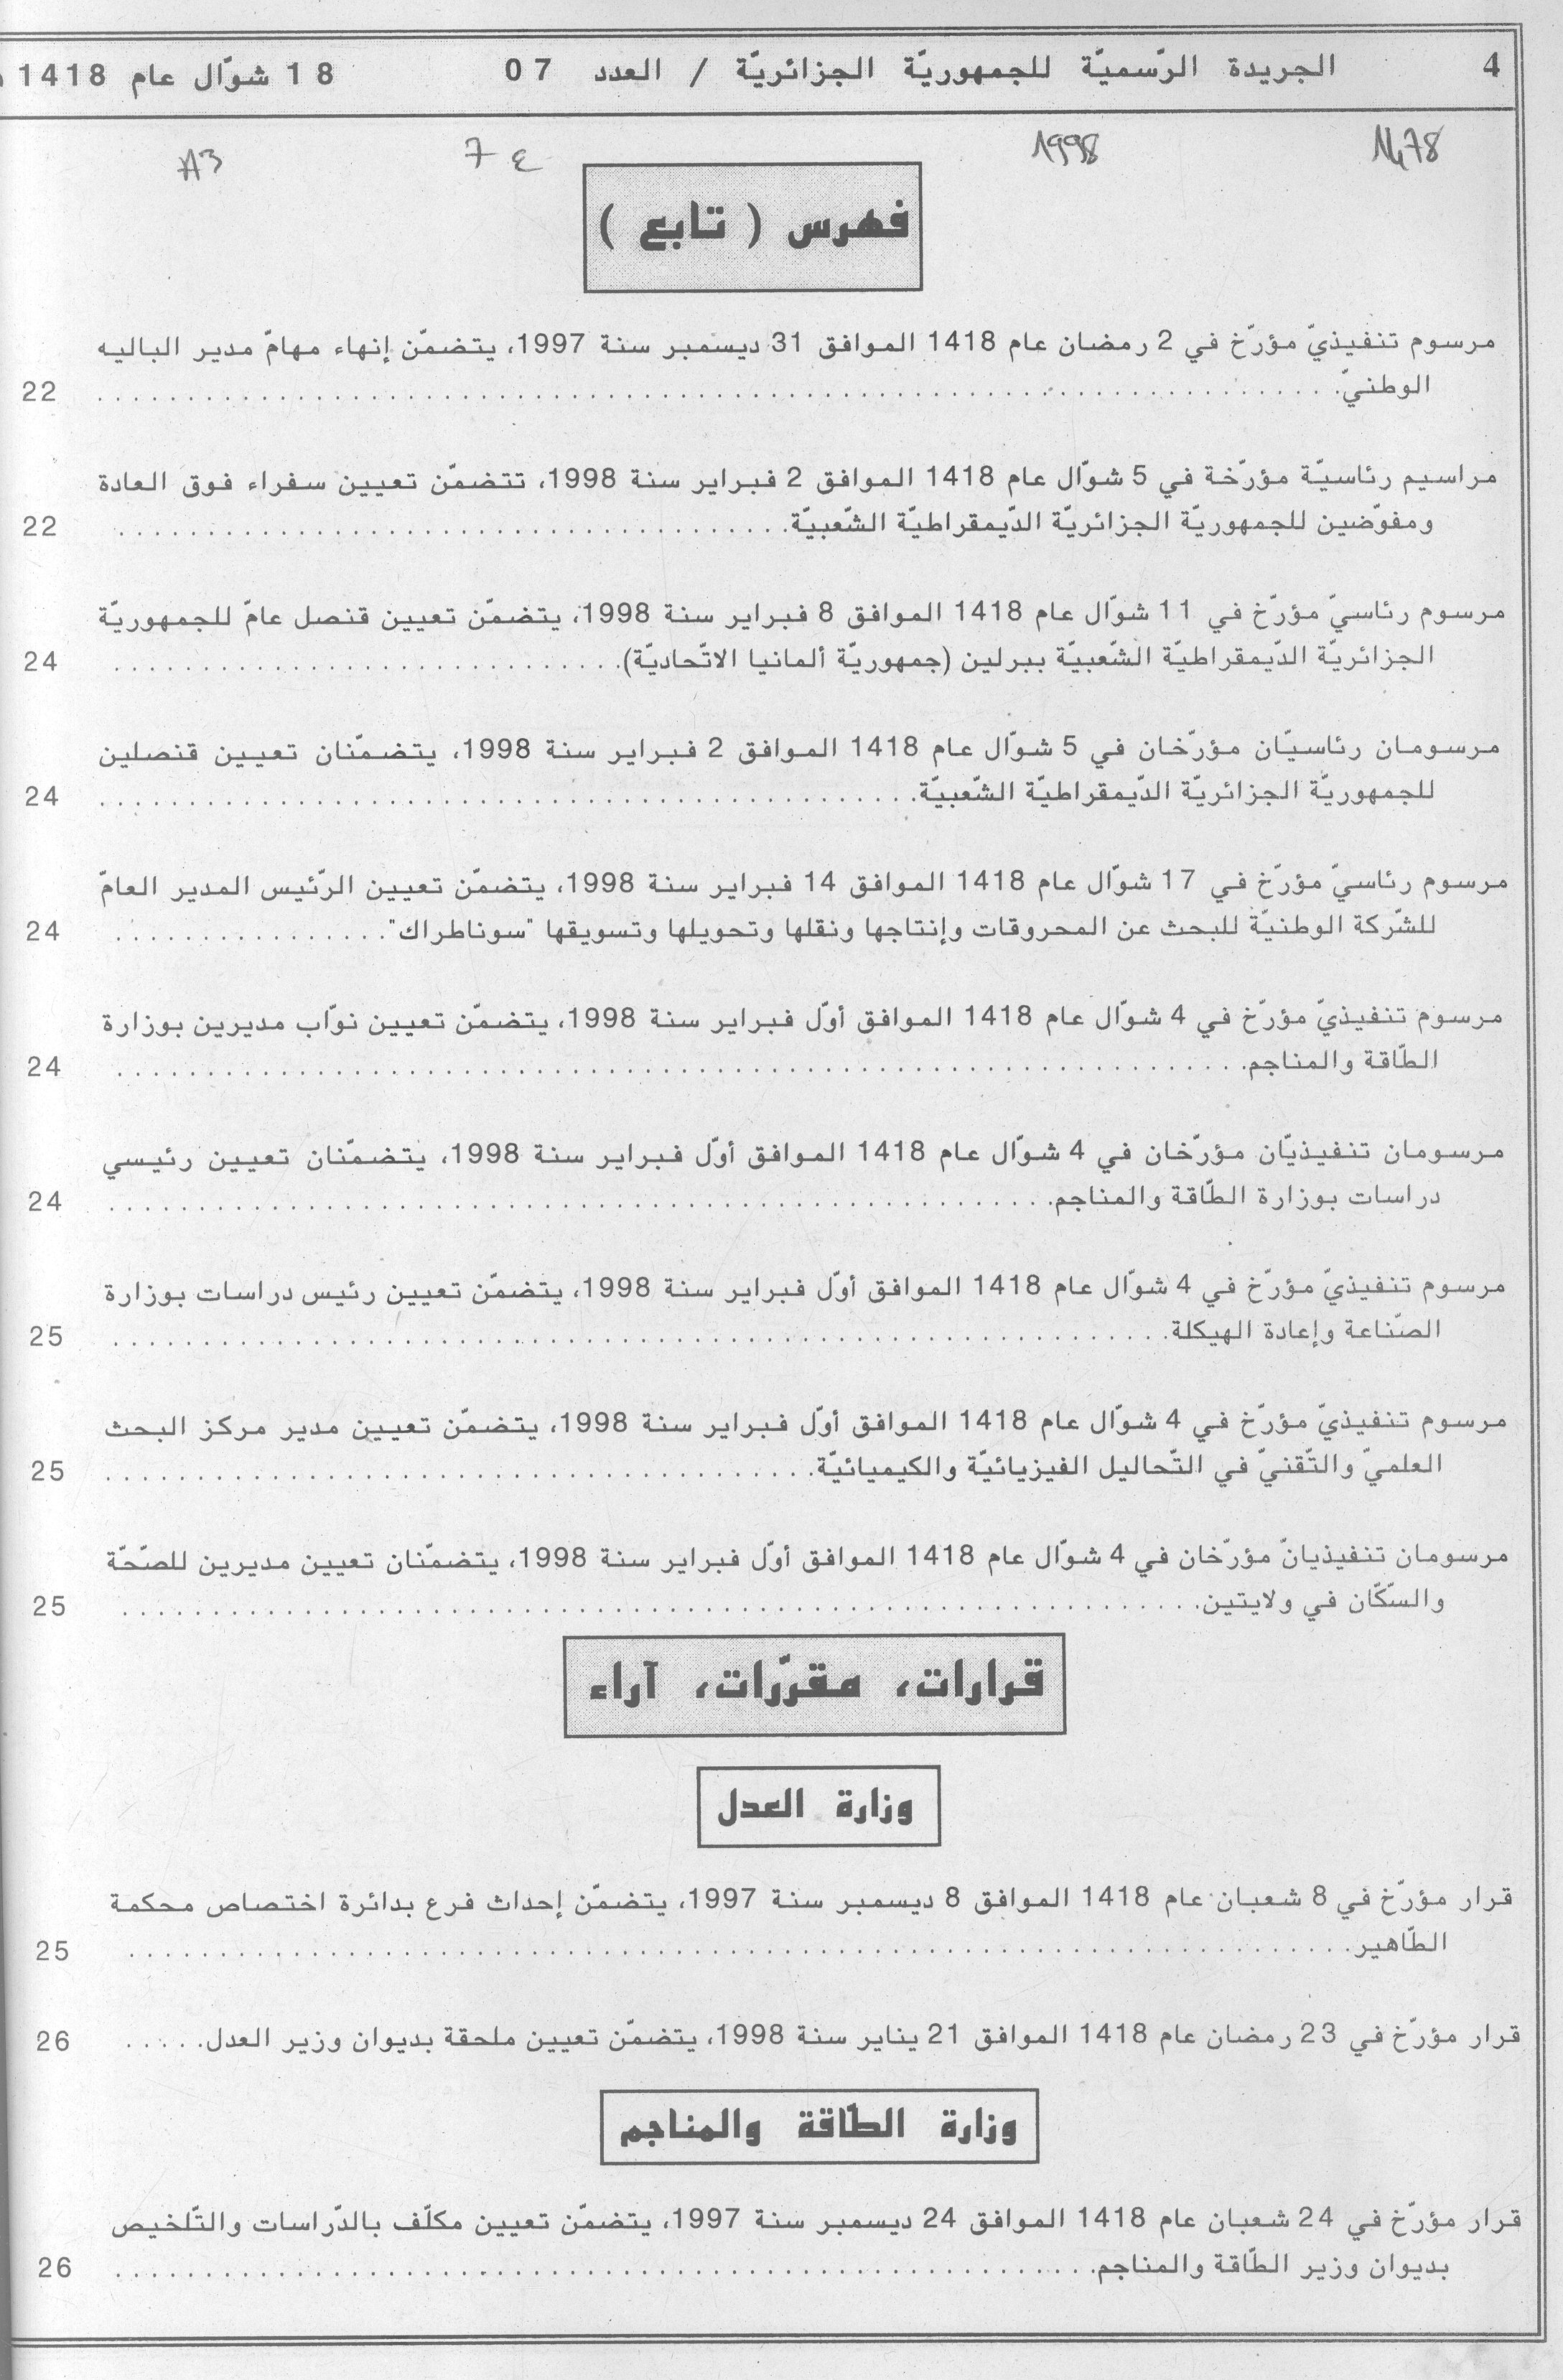 4 الجريدة الرّسميّة للجمهوريّة الجزائريّة / العدد 07 18 شوّال عام 1418
1998 7 ع A3
فهرس ( تابع )
مرسوم تنفيذيّ مؤرّخ في 2 رمضان عام 1418 الموافق 31 ديسمبر سنة 1997، يتضمّن إنهاء مهامّ مدير الباليه
الوطنيّ. . . . . . . . . . 22
مراسيم رئاسيّة مؤرّخة في 5 شوّال عام 1418 الموافق 2 فبراير سنة 1998، تتضمّن تعيين سفراء فوق العادة
ومفوّضين للجمهوريّة الجزائريّة الدّيمقراطيّة الشّعبيّة. . . . . . . . . . 22
مرسوم رئاسيّ مؤرّخ في 11 شوّال عام 1418 الموافق 8 فبراير سنة 1998، يتضمّن تعيين قنصل عامّ للجمهوريّة
الجزائريّة الدّيمقراطيّة الشّعبيّة ببرلين (جمهوريّة ألمانيا الاتّحاديّة). . . . . . . . . . 24
مرسومان رئاسيّان مؤرّخان في 5 شوّال عام 1418 الموافق 2 فبراير سنة 1998، يتضمّنان تعيين قنصلين
للجمهوريّة الجزائريّة الدّيمقراطيّة الشّعبيّة. . . . . . . . . . 24
مرسوم رئاسيّ مؤرّخ في 17 شوّال عام 1418 الموافق 14 فبراير سنة 1998، يتضمّن تعيين الرّئيس المدير العامّ
للشّركة الوطنيّة للبحث عن المحروقات وإنتاجها ونقلها وتحويلها وتسويقها "سوناطراك". . . . . . . . . . 24
مرسوم تنفيذيّ مؤرّخ في 4 شوّال عام 1418 الموافق أوّل فبراير سنة 1998، يتضمّن تعيين نوّاب مديرين بوزارة
الطّاقة والمناجم. . . . . . . . . . 24
مرسومان تنفيذيّان مؤرّخان في 4 شوّال عام 1418 الموافق أوّل فبراير سنة 1998، يتضمّنان تعيين رئيسي
دراسات بوزارة الطّاقة والمناجم. . . . . . . . . . 24
مرسوم تنفيذيّ مؤرّخ في 4 شوّال عام 1418 الموافق أوّل فبراير سنة 1998، يتضمّن تعيين رئيس دراسات بوزارة
الصّناعة وإعادة الهيكلة. . . . . . . . . . 25
مرسوم تنفيذيّ مؤرّخ في 4 شوّال عام 1418 الموافق أوّل فبراير سنة 1998، يتضمّن تعيين مدير مركز البحث
العلميّ والتّقنيّ في التّحاليل الفيزيائيّة والكيميائيّة. . . . . . . . . . 25
مرسومان تنفيذيانّ مؤرّخان في 4 شوّال عام 1418 الموافق أوّل فبراير سنة 1998، يتضمّنان تعيين مديرين للصّحّة
والسّكّان في ولايتين. . . . . . . . . . 25
قرارات، مقرّرات، آراء
وزارة العدل
قرار مؤرّخ في 8 شعبان عام 1418 الموافق 8 ديسمبر سنة 1997، يتضمّن إحداث فرع بدائرة اختصاص محكمة
الطّاهير. . . . . . . . . . 25
قرار مؤرّخ في 23 رمضان عام 1418 الموافق 21 يناير سنة 1998، يتضمّن تعيين ملحقة بديوان وزير العدل. . . . . . 26
وزارة الطّاقة والمناجم
قرار مؤرّخ في 24 شعبان عام 1418 الموافق 24 ديسمبر سنة 1997، يتضمّن تعيين مكلّف بالدّراسات والتّلخيص
بديوان وزير الطّاقة والمناجم. . . . . . . . . . 26